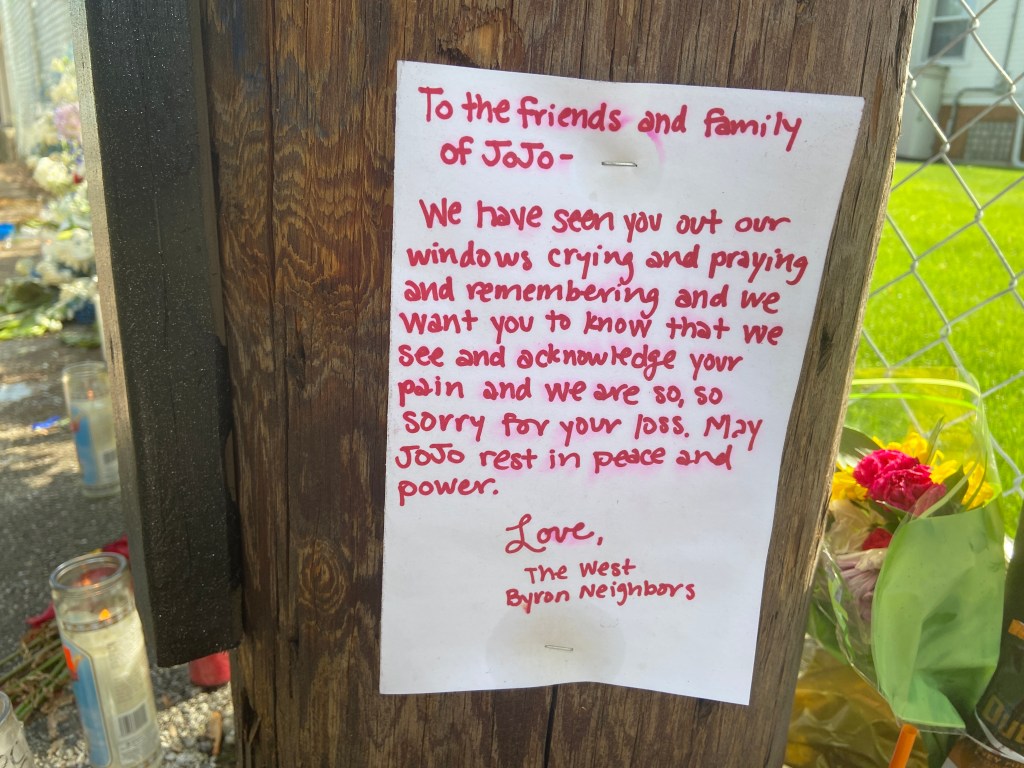 To the friends and family
of JoJo-
We have seen you out our
windows crying and praying
and remembering and we
want you to know that we
see and acknowledge your
pain and we are so, so
sorry for your loss. May
JoJo rest in peace and
power.
Love,
The West
Byron Neighbors